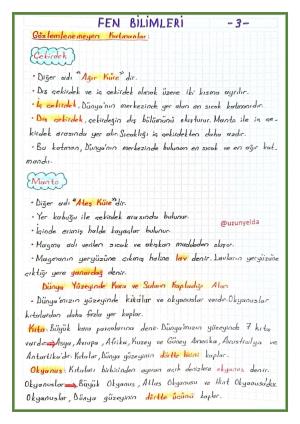 FEN BİLİMLERİ -3-
Gözlemlenemeyen Katmanlar:
Çekirdek
• Diğer adı "Ağır Küre"dir.
• Dış çekirdek ve iç çekirdek olmak üzere iki kısma ayrılır.
• İç çekirdek, Dünya'nın merkezinde yer alan en sıcak katmanıdır.
• Dış çekirdek, çekirdeğin dış bölümünü oluşturur. Manto ile iç çe-
kirdek arasında yer alır. Sıcaklığı iç çekirdekten daha azdır.
• Bu katman, Dünya'nın merkezinde bulunan en sıcak ve en ağır kat-
mandır.
Manto
• Diğer adı "Ateş Küre"dir.
• Yer kabuğu ile çekirdek arasında bulunur.
• İçinde erimiş halde kayalar bulunur.
@uzunyelda
• Magma adı verilen sıcak ve akışkan maddeden oluşur.
• Magmanın yeryüzüne çıkmış haline lav denir. Lavların yeryüzüne
çıktığı yere yanardağ denir.
Dünya Yüzeyinde Kara ve Suların Kapladığı Alan
• Dünya'mızın yüzeyinde kıtalar ve okyanuslar vardır. Okyanuslar
kıtalardan daha fazla yer kaplar.
Kıta: Büyük kara parçalarına denir. Dünya'mızın yüzeyinde 7 kıta
vardır. → Asya, Avrupa, Afrika, Kuzey ve Güney Amerika, Avustralya ve
Antartika'dır. Kıtalar, Dünya yüzeyinin dörtte birini kaplar.
Okyanus: Kıtaları birbirinden ayıran açık denizlere okyanus denir.
Okyanuslar → Büyük Okyanus, Atlas Okyanusu ve Hint Okyanusu'dur.
Okyanuslar, Dünya yüzeyinin dörtte üçünü kaplar.